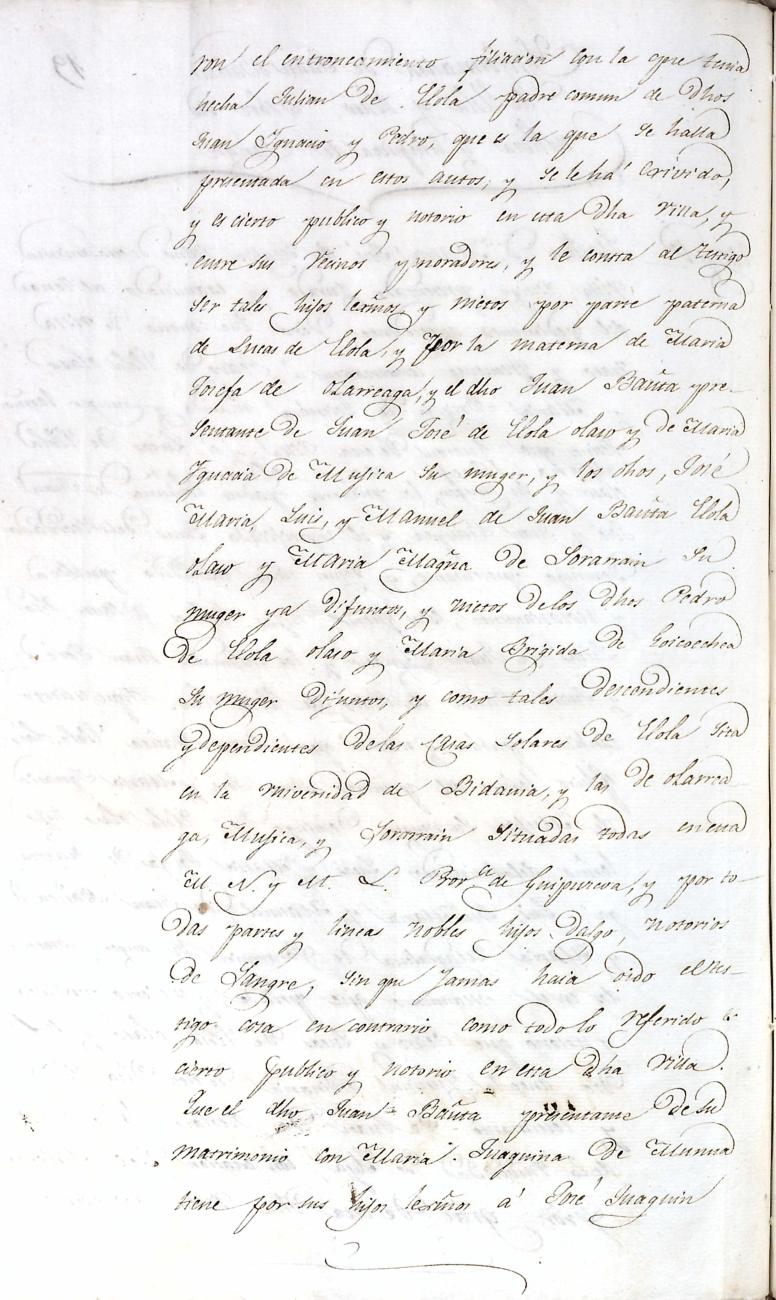 ron el entroncamiento filiacion con la que tenia
hecha Julian de Elola padre comun de dhos
Juan Ygnacio y Pedro, que es la que se halla
presentada en estos autos, y se le há Exivido,
y es cierto publico y notorio en esta dha Villa, y
entre sus Vecinos y moradores, y le consta al testigo
ser tales hijos lexmos y nietos por parte paterna
de Lucas de Elola, y Por la materna de Maria
Josefa de olarreaga, y el dho Juan Bauta pre-
sentante de Juan José de Elola olaso y de Maria
Ygnacia de Mugica su muger, y los dhos, José
Maria, Luis, y Manuel de Juan Bauta Elola
olaso y Maria Magna de Sorarrain su
muger ya difuntos, y nietos delos dhos Pedro
de Elola olaso y Maria Brigida de Goicoechea
su muger Difuntos, y como tales descendientes
y dependientes delas Casas Solares de Elola sita
en la Universidad de Bidania, y las de olarrea
ga, Mugica, y Sorarrain situadas todas en esta
M. N. y M. L. Prova de Guipuzcoa, y por to-
das partes y lineas Nobles hijos Dalgo, Notorios
de Sangre, sin que Jamas haia oido el tes-
tigo cosa en contrario como todo lo referido es
cierto publico y notorio en esta dha Villa.
Que el dho Juan Bauta presentante de su
matrimonio con Maria Juaquina de Munua
tiene por sus hijos lexmos á José Juaquin